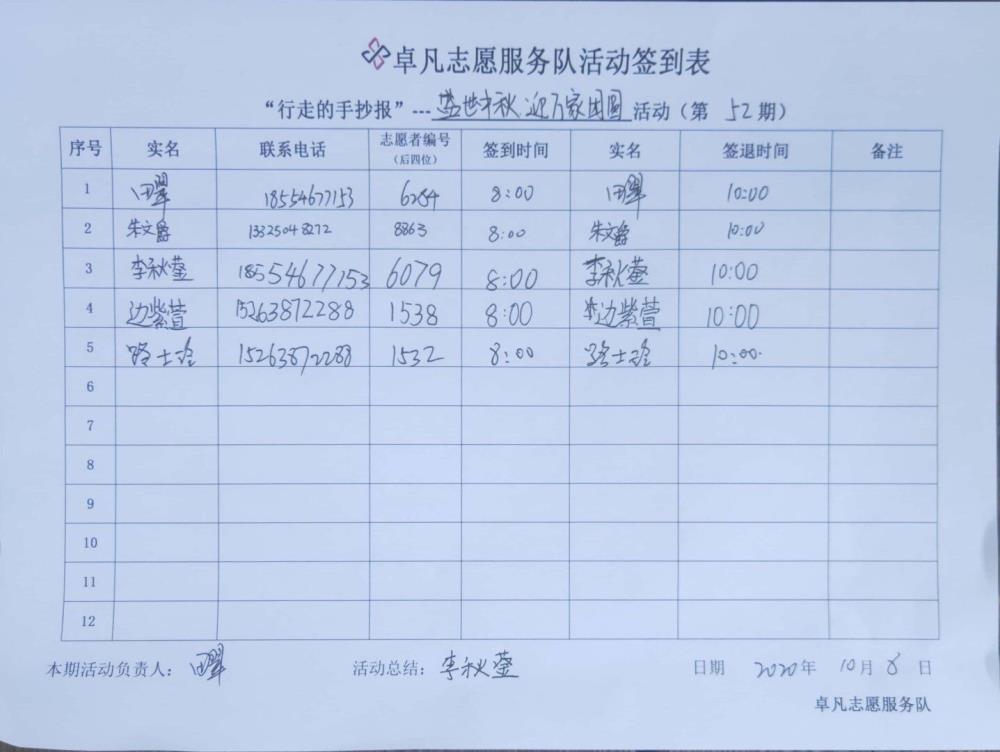 卓凡志愿服务队活动签到表
“行走的手抄报”---盛世中秋 迎万家团圆 活动(第 52 期)
序号 实名 联系电话 志愿者编号(后四位) 签到时间 实名 签退时间 备注
1 田翠 18554677153 6284 8:00 田翠 10:00
2 朱文爵 13325048272 8863 8:00 朱文爵 10:00
3 李秋蓥 18554677153 6079 8:00 李秋蓥 10:00
4 边紫萱 15263872288 1538 8:00 边紫萱 10:00
5 路士玲 15263872288 1532 8:00 路士玲 10:00
6
7
8
9
10
11
12
本期活动负责人: 田翠 活动总结: 李秋蓥 日期 2020年 10月 8 日
卓凡志愿服务队